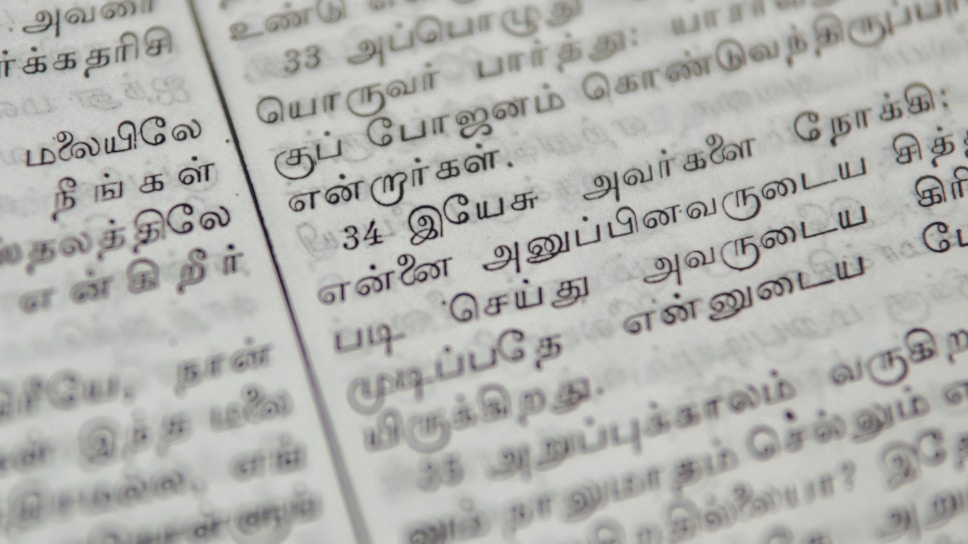 அவரை
ர்க்கதரிசி
மலையிலே
நீங்கள்
ஸ்தலத்திலே
என்கிறீர்
நான்
இந்த மலை
உண்டு
33 அப்பொழுது
யொருவர் பார்த்து:
குப் போஜனம் கொண்டுவந்திருப்பா
என்றார்கள்.
34 இயேசு அவர்களை நோக்கி:
என்னை அனுப்பினவருடைய சித்த
படி செய்து அவருடைய கிரி
முடிப்பதே என்னுடைய போ
யிருக்கிறது.
35 அறுப்புக்காலம் வருகிற
னும் நாலுமாதம் செல்லும் எ
கிறதில்லையா? இதோ
அறு